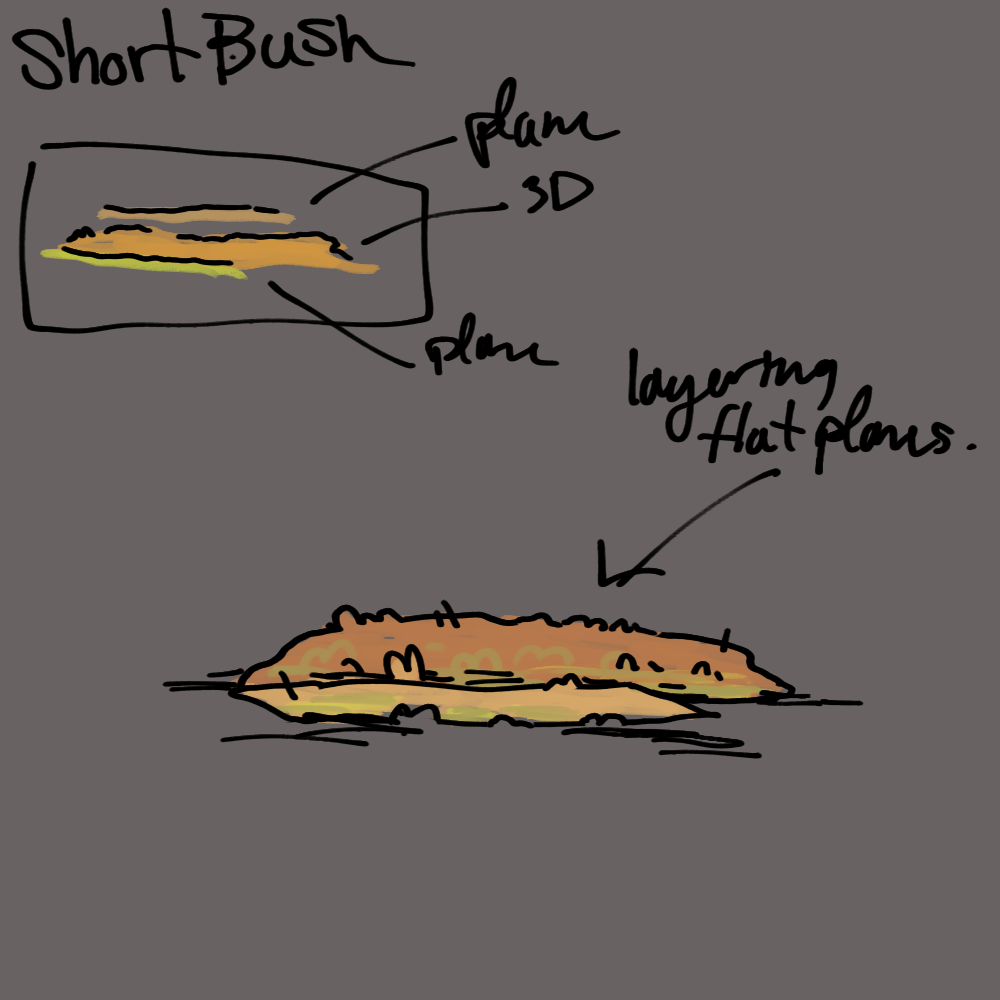 Short Bush
plane
3D
plane
layering
flat planes.